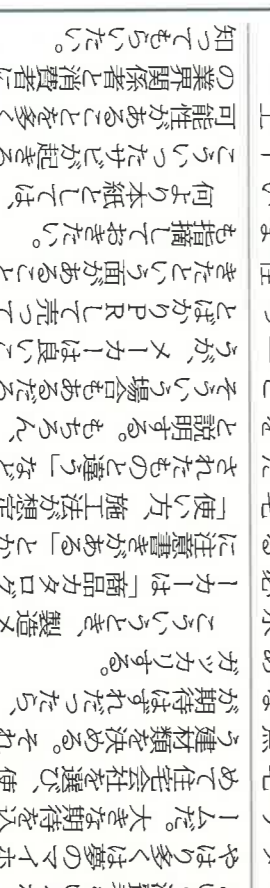 やはり多くは夢のマイホ
ームだ。大きな期待を込
めて住宅会社を選び、使
う建材類を決める。それ
が期待はずれだったら、
ガッカリする。
　こういうとき、製造メ
ーカーは「商品カタログ
に注意書きがある」とか
「使い方、施工法が想定
されたものと違う」など
と説明する。もちろん、
そういう場合もあるだろ
うが、メーカーは良いこ
とばかりPRして売って
きたという面があること
も指摘しておきたい。
　何より本紙としては、
こういったサビが起きる
可能性があることを多く
の業界関係者と消費者に
知ってもらいたい。